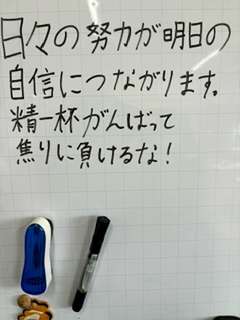 日々の努力が明日の
自信につながります。
精一杯がんばって
焦りに負けるな!